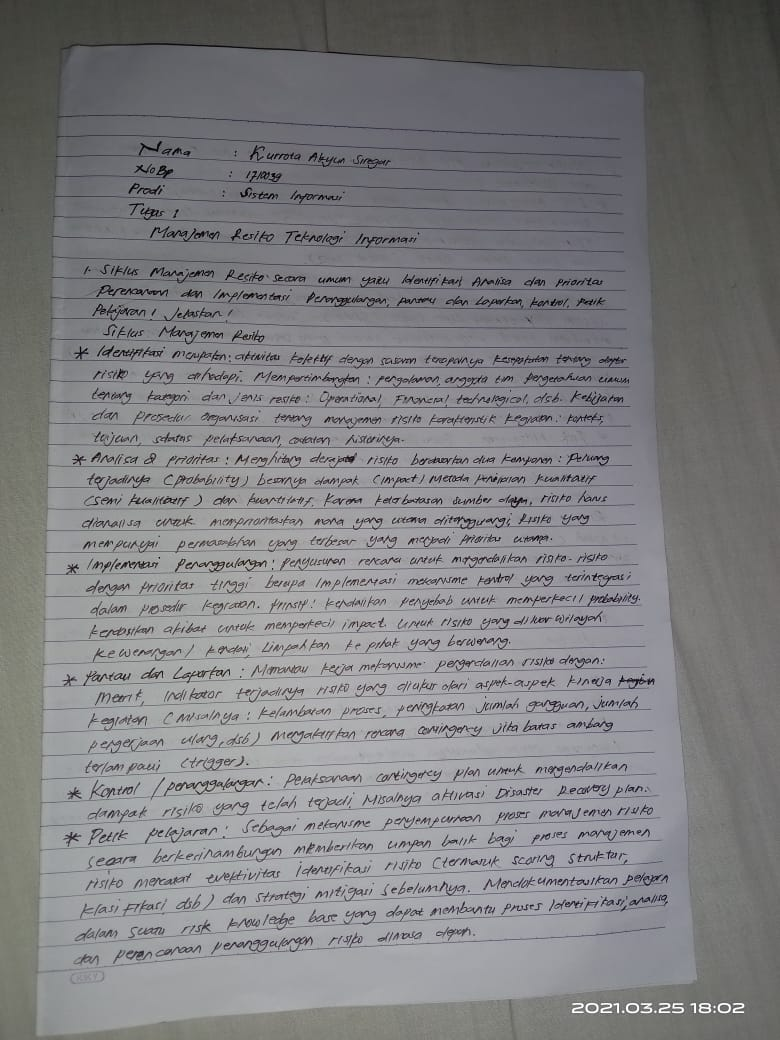 Nama : Kurrota Akyun Siregar
No Bp : 1710039
Prodi : Sistem Informasi
Tugas 1
Manajemen Resiko Teknologi Informasi
1. Siklus Manajemen Resiko secara umum yaitu Identifikasi, Analisa dan Prioritas
Perencanaan dan Implementasi Penanggulangan, pantau dan Laporkan, kontrol, Petik
Pelajaran! Jelaskan!
Siklus Manajemen Resiko
* Identifikasi merupakan: aktivitas kolektif dengan sasaran tercapainya kesepakatan tentang daftar
risiko yang dihadapi. Mempertimbangkan: pengalaman, anggota tim pengetahuan umum
tentang kategori dan jenis resiko: Operational, Financial, technological, dsb. Kebijakan
dan prosedur organisasi tentang manajemen risiko karakteristik kegiatan: konteks,
tujuan, status pelaksanaan, catatan historinya.
* Analisa & prioritas: Menghitung derajat risiko berdasarkan dua komponen: Peluang
terjadinya (probability) besarnya dampak (impact) Metoda penilaian kualitatif
(semi kualitatif) dan kuantitatif. Karena keterbatasan sumber daya, risiko harus
dianalisa untuk memprioritaskan mana yang utama ditanggungi, Risiko yang
mempunyai permasalahan yang terbesar yang menjadi prioritas utama.
* Implementasi Penanggulangan: penyusunan rencana untuk mengendalikan risiko-risiko
dengan prioritas tinggi berupa implementasi mekanisme kontrol yang terintegrasi
dalam prosedur kegiatan. Prinsip: kendalikan penyebab untuk memperkecil probability.
kendalikan akibat untuk memperkecil impact. Untuk risiko yang diluar wilayah
kewenangan/kendali limpahkan ke pihak yang berwenang.
* Pantau dan Laporkan: Memantau kerja mekanisme pengendalian risiko dengan:
Metrik, Indikator terjadinya risiko yang diukur dari aspek-aspek kinerja
kegiatan (misalnya: kelambatan proses, peningkatan jumlah gangguan, jumlah
pengerjaan ulang, dsb) Mengaktifkan rencana contingency jika batas ambang
terlampaui (trigger).
* Kontrol / penanggulangan: Pelaksanaan contingency plan untuk mengendalikan
dampak risiko yang telah terjadi Misalnya aktivasi Disaster Recovery plan.
* Petik pelajaran: Sebagai mekanisme penyempurnaan proses manajemen risiko
secara berkerinambungan memberikan umpan balik bagi proses manajemen
risiko mencatat evektivitas identifikasi risiko (termasuk scoring struktur,
klasifikasi, dsb) dan strategi mitigasi sebelumnya. Mendokumentasikan pelajaran
dalam suatu risk knowledge base yang dapat membantu proses identifikasi, analisa,
dan perencanaan penanggulangan risiko dimasa depan.
KKY
2021.03.25 18:02